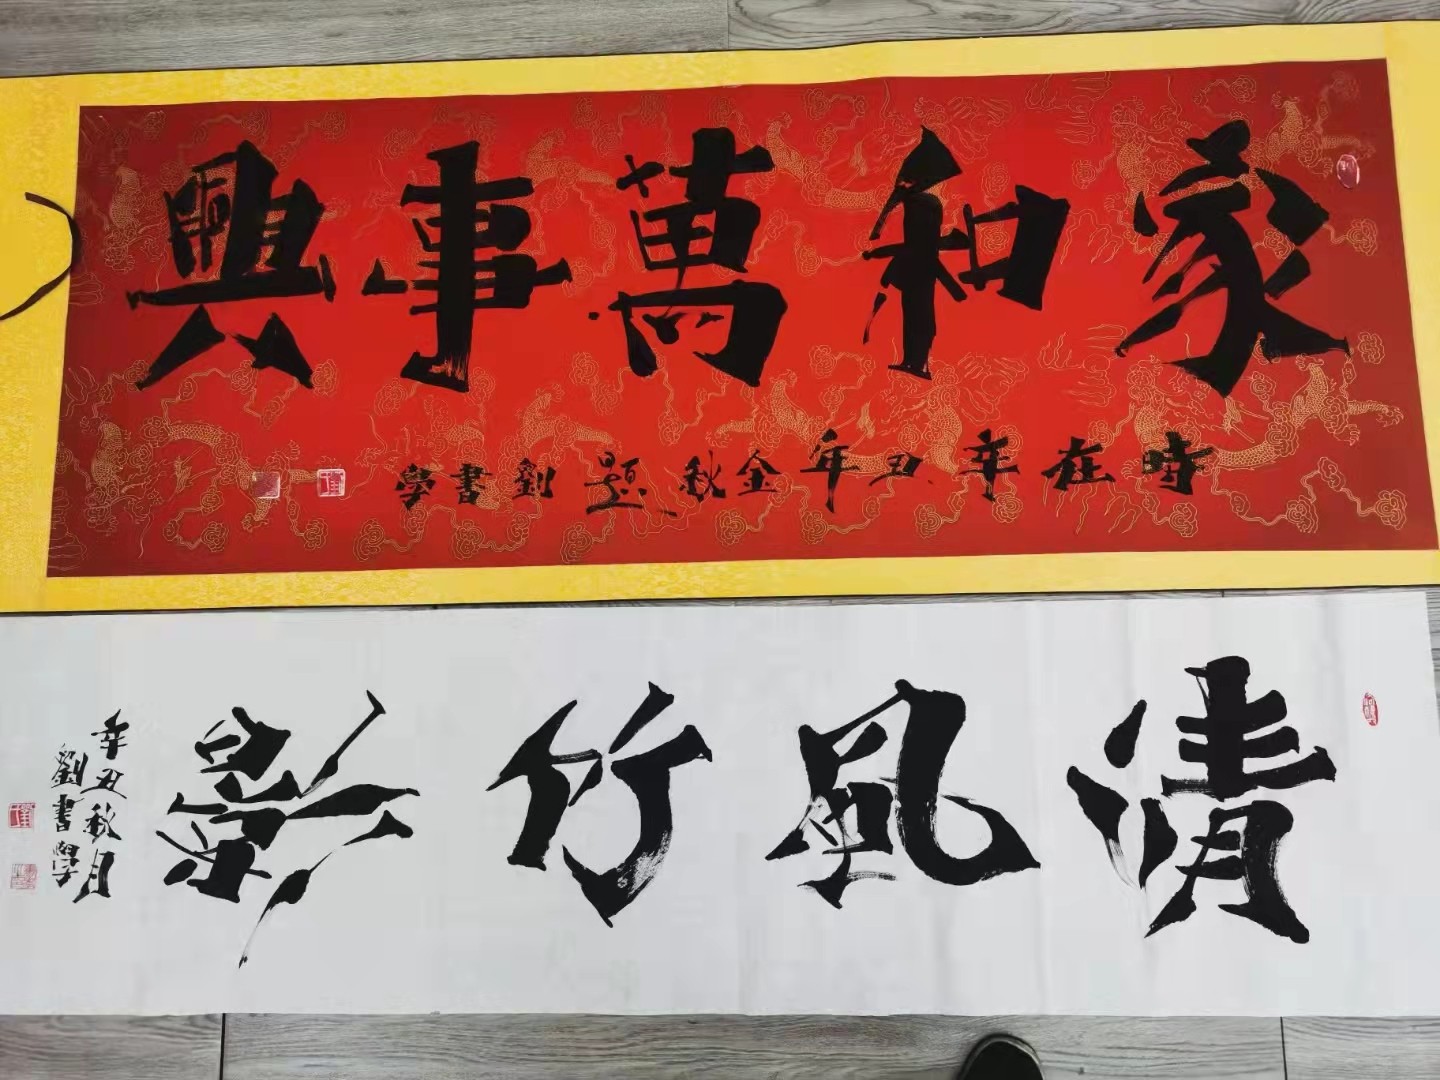 家和萬事興
時在辛丑年金秋題劉書學
清風竹影
辛丑秋月
劉書學